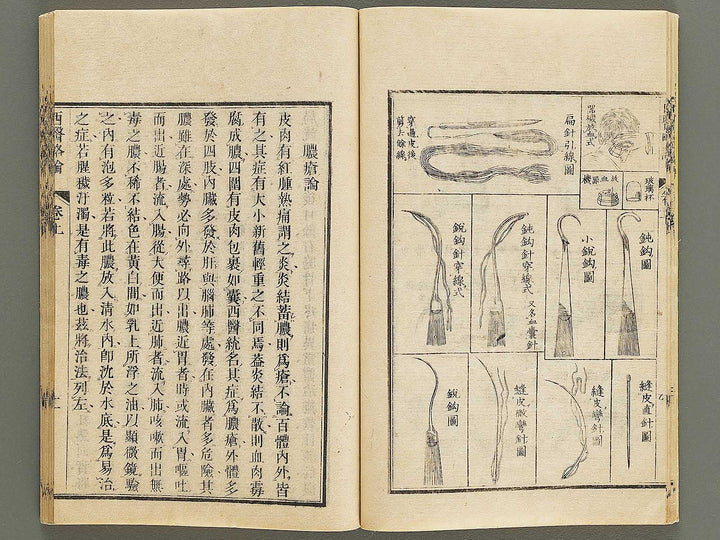 罨礮放血式
玻璃杯
放血器機
扁針引線圖
穿過皮後
剪去餘線
鈍鈎圖
小銳鈎圖
鈍鈎針穿線式 又名血囊針
銳鈎針穿線式
縫皮直針圖
縫皮彎針圖
縫皮微彎針圖
銳鈎圖
膿瘡論
皮肉有紅腫熱痛謂之炎炎結蓄膿則爲瘡不論百體內外皆
有之其症有大小新舊輕重之不同焉葢炎結不散則血肉毒
腐成膿四圍有皮肉包裹如囊西醫統名其症爲膿瘡外體多
發於四肢內臟多發於肝與腦肺等處發在內臟者多危險其
膿雖在深處勢必向外尋路以出膿近胃者時或流入胃嘔吐
而出近腸者流入腸從大便而出近肺者流入肺咳嗽而出無
毒之膿不稀不結色在黃白間如乳上所浮之油以顯微鏡驗
之內有泡多粒若將此膿放入清水內卽沈於水底是爲易治
之症若腥穢汙濁是有毒之膿也茲將治法列左
西醫畧論
卷上